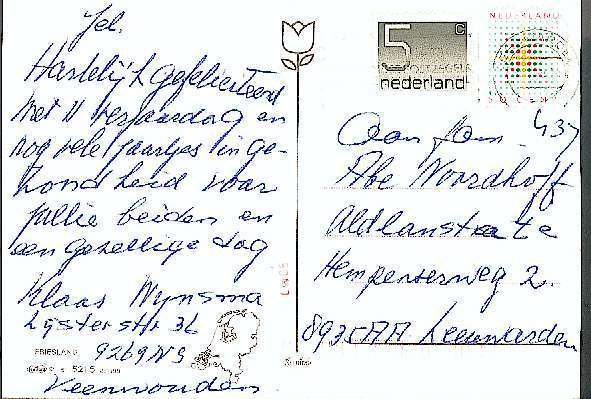 Hartelijk gefeliciteerd
met U verjaardag en
nog vele jaartjes in ge-
zondheid voor
jullie beiden en
een gezellige dag
Klaas Wynsma
Lijsterstr 36
9269NS
Veenwouden
FRIESLAND
5
c
nederland
NEDERLAND
50 CENT
437
Aan fam.
Abe Noordhoff
Aldlanstate
Hempenserweg 2.
8935AA Leeuwarden